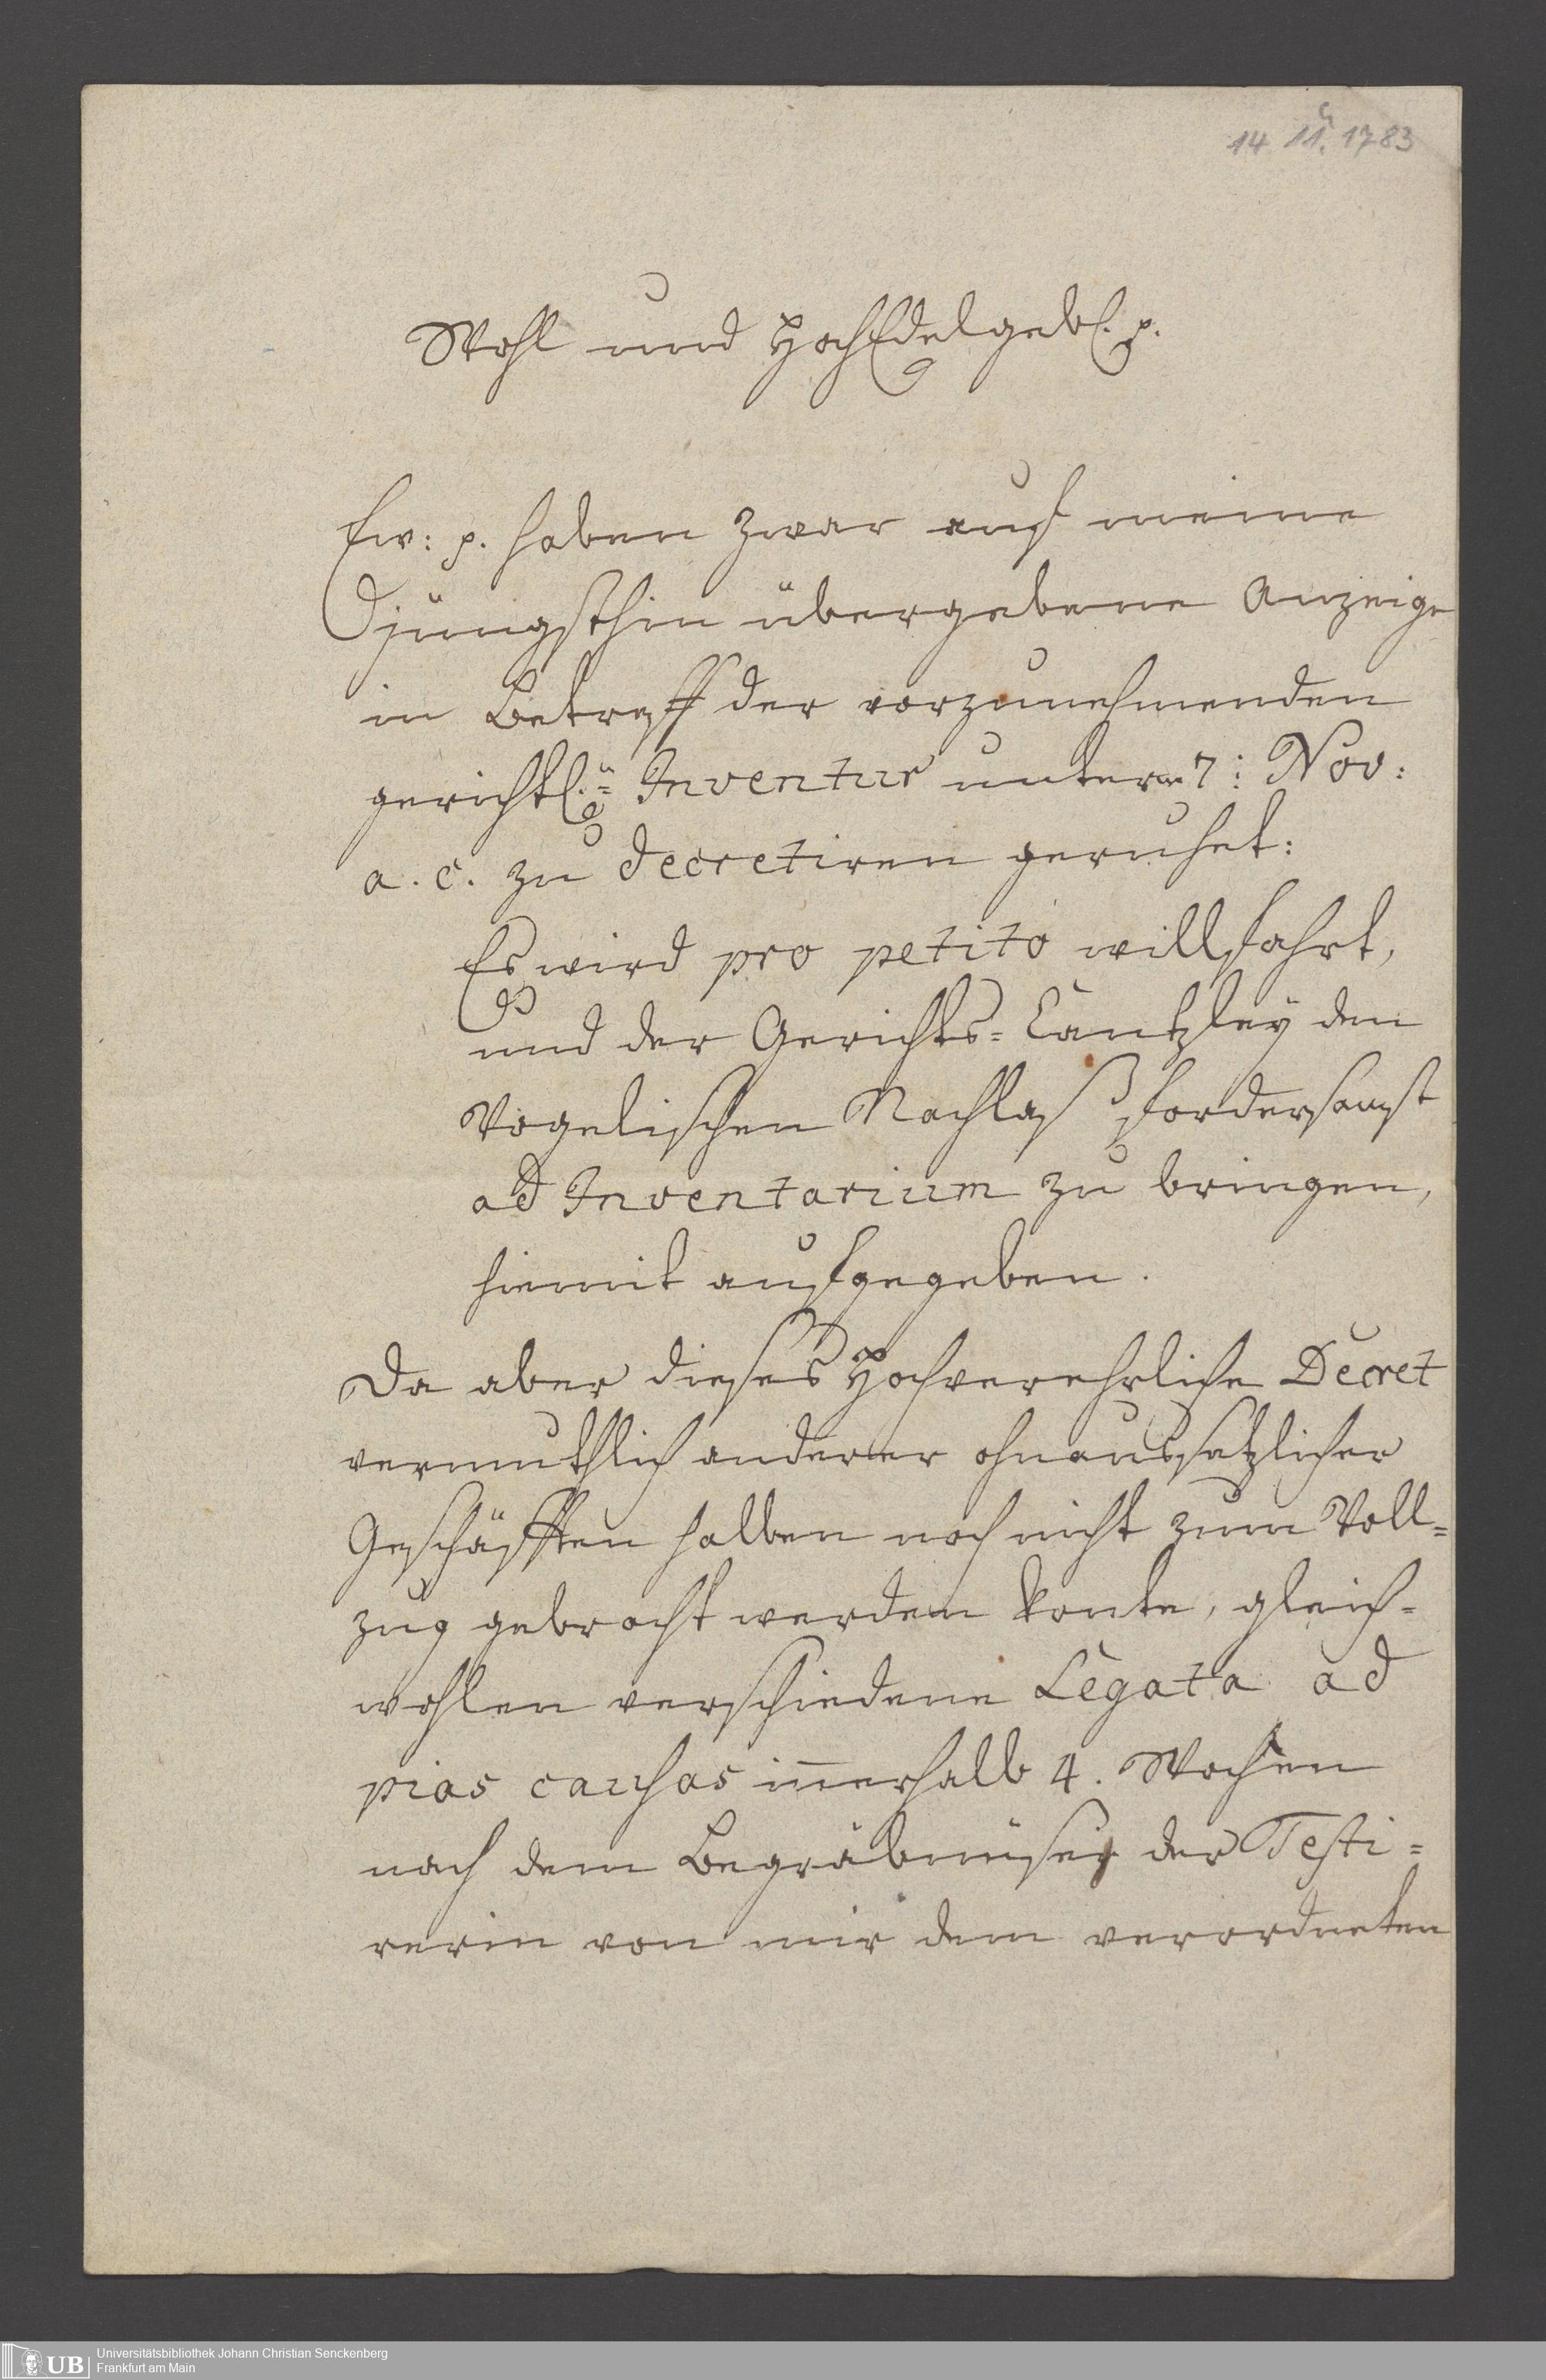 14 11. 1783
Wohl und HochEdelgebl. p.
Ew: p. haben zwar auf meine
jüngsthin übergebene Anzeige
in Betreff der vorzunehmenden
gerichtl.n Inventur unterm 7: Nov:
a. c. zu decretiren geruhet:
Es wird pro petito willfahrt,
und der Gerichts=Cantzley den
Vogelischen Nachlaß fordersamst
ad Inventarium zu bringen,
hiemit aufgegeben.
Da aber dieses Hochverehrliche Decret
vermuthlich anderer ohnaussetzlicher
Geschäfften halben noch nicht zum Voll=
zug gebracht werden konte, gleich=
wohlen verschiedene Legata ad
pias causas inerhalb 4. Wochen
nach dem Begräbnüße der Testi=
rerin von mir dem verordneten
UB Universitätsbibliothek Johann Christian Senckenberg
Frankfurt am Main